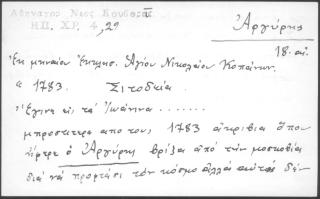 Ἀθηνάγορ. Νεος Κουβαρᾶ
ΗΠ. ΧΡ. 4, 29
Ἀργύρης
18. αἰ.
Ἐκ μηναίου Ἐκκλησ. Ἁγίου Νικολάου Κοπάνων.
" 1783. Σιτοδεία
"Εγινε εἰς τὰ Ἰωάννινα .......
μπροστητερα απο τους 1783 ακριβια ὅπου
ἤφερε ὁ Ἀργύρης βρίζα ἀπὸ τὴν μοσκοβία
διὰ νὰ προφτάσῃ τὸν κόσμο ἀλλὰ αὐτὸς δὲν